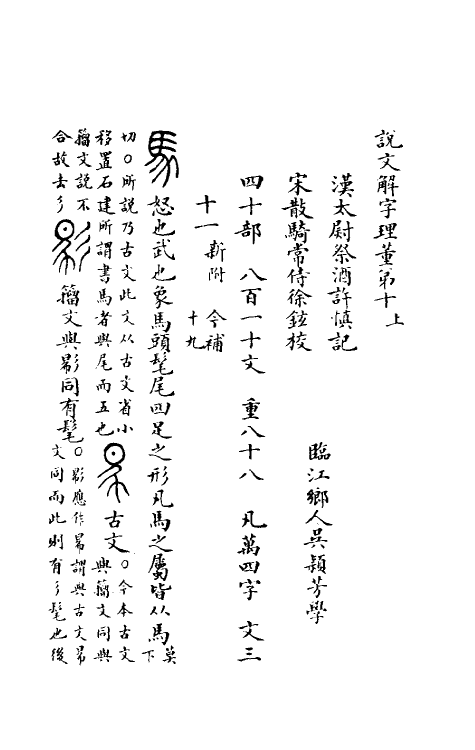 說文解字理董弟十上
漢太尉祭酒許慎記
宋散騎常侍徐鉉校
臨江鄉人吳穎芳學
四十部 八百一十文 重八十八 凡萬四字 文三
十一新附 今補十九
馬 怒也武也象馬頭髦尾四足之形凡馬之屬皆从馬莫下
切○所說乃古文此文从古文省小
移置石建所謂書馬者與尾而五也
古文○今本古文
與籀文同與
籀文說不
合故去彡
籀文與影同有髦○影應作昜謂與古文昜
文同而此則有彡髦也後